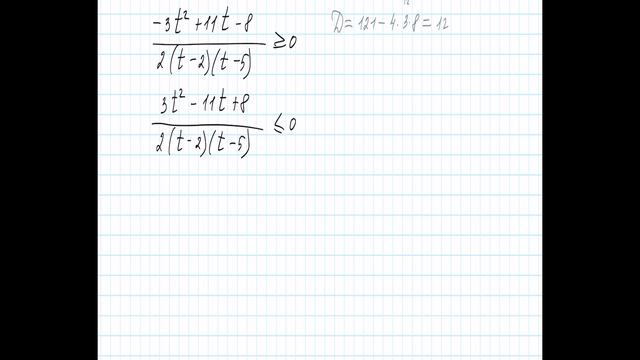 -3t² + 11t - 8
2(t-2)(t-5) ≥ 0
D = 121 - 4·3·8 = 12
3t² - 11t + 8
2(t-2)(t-5) ≤ 0